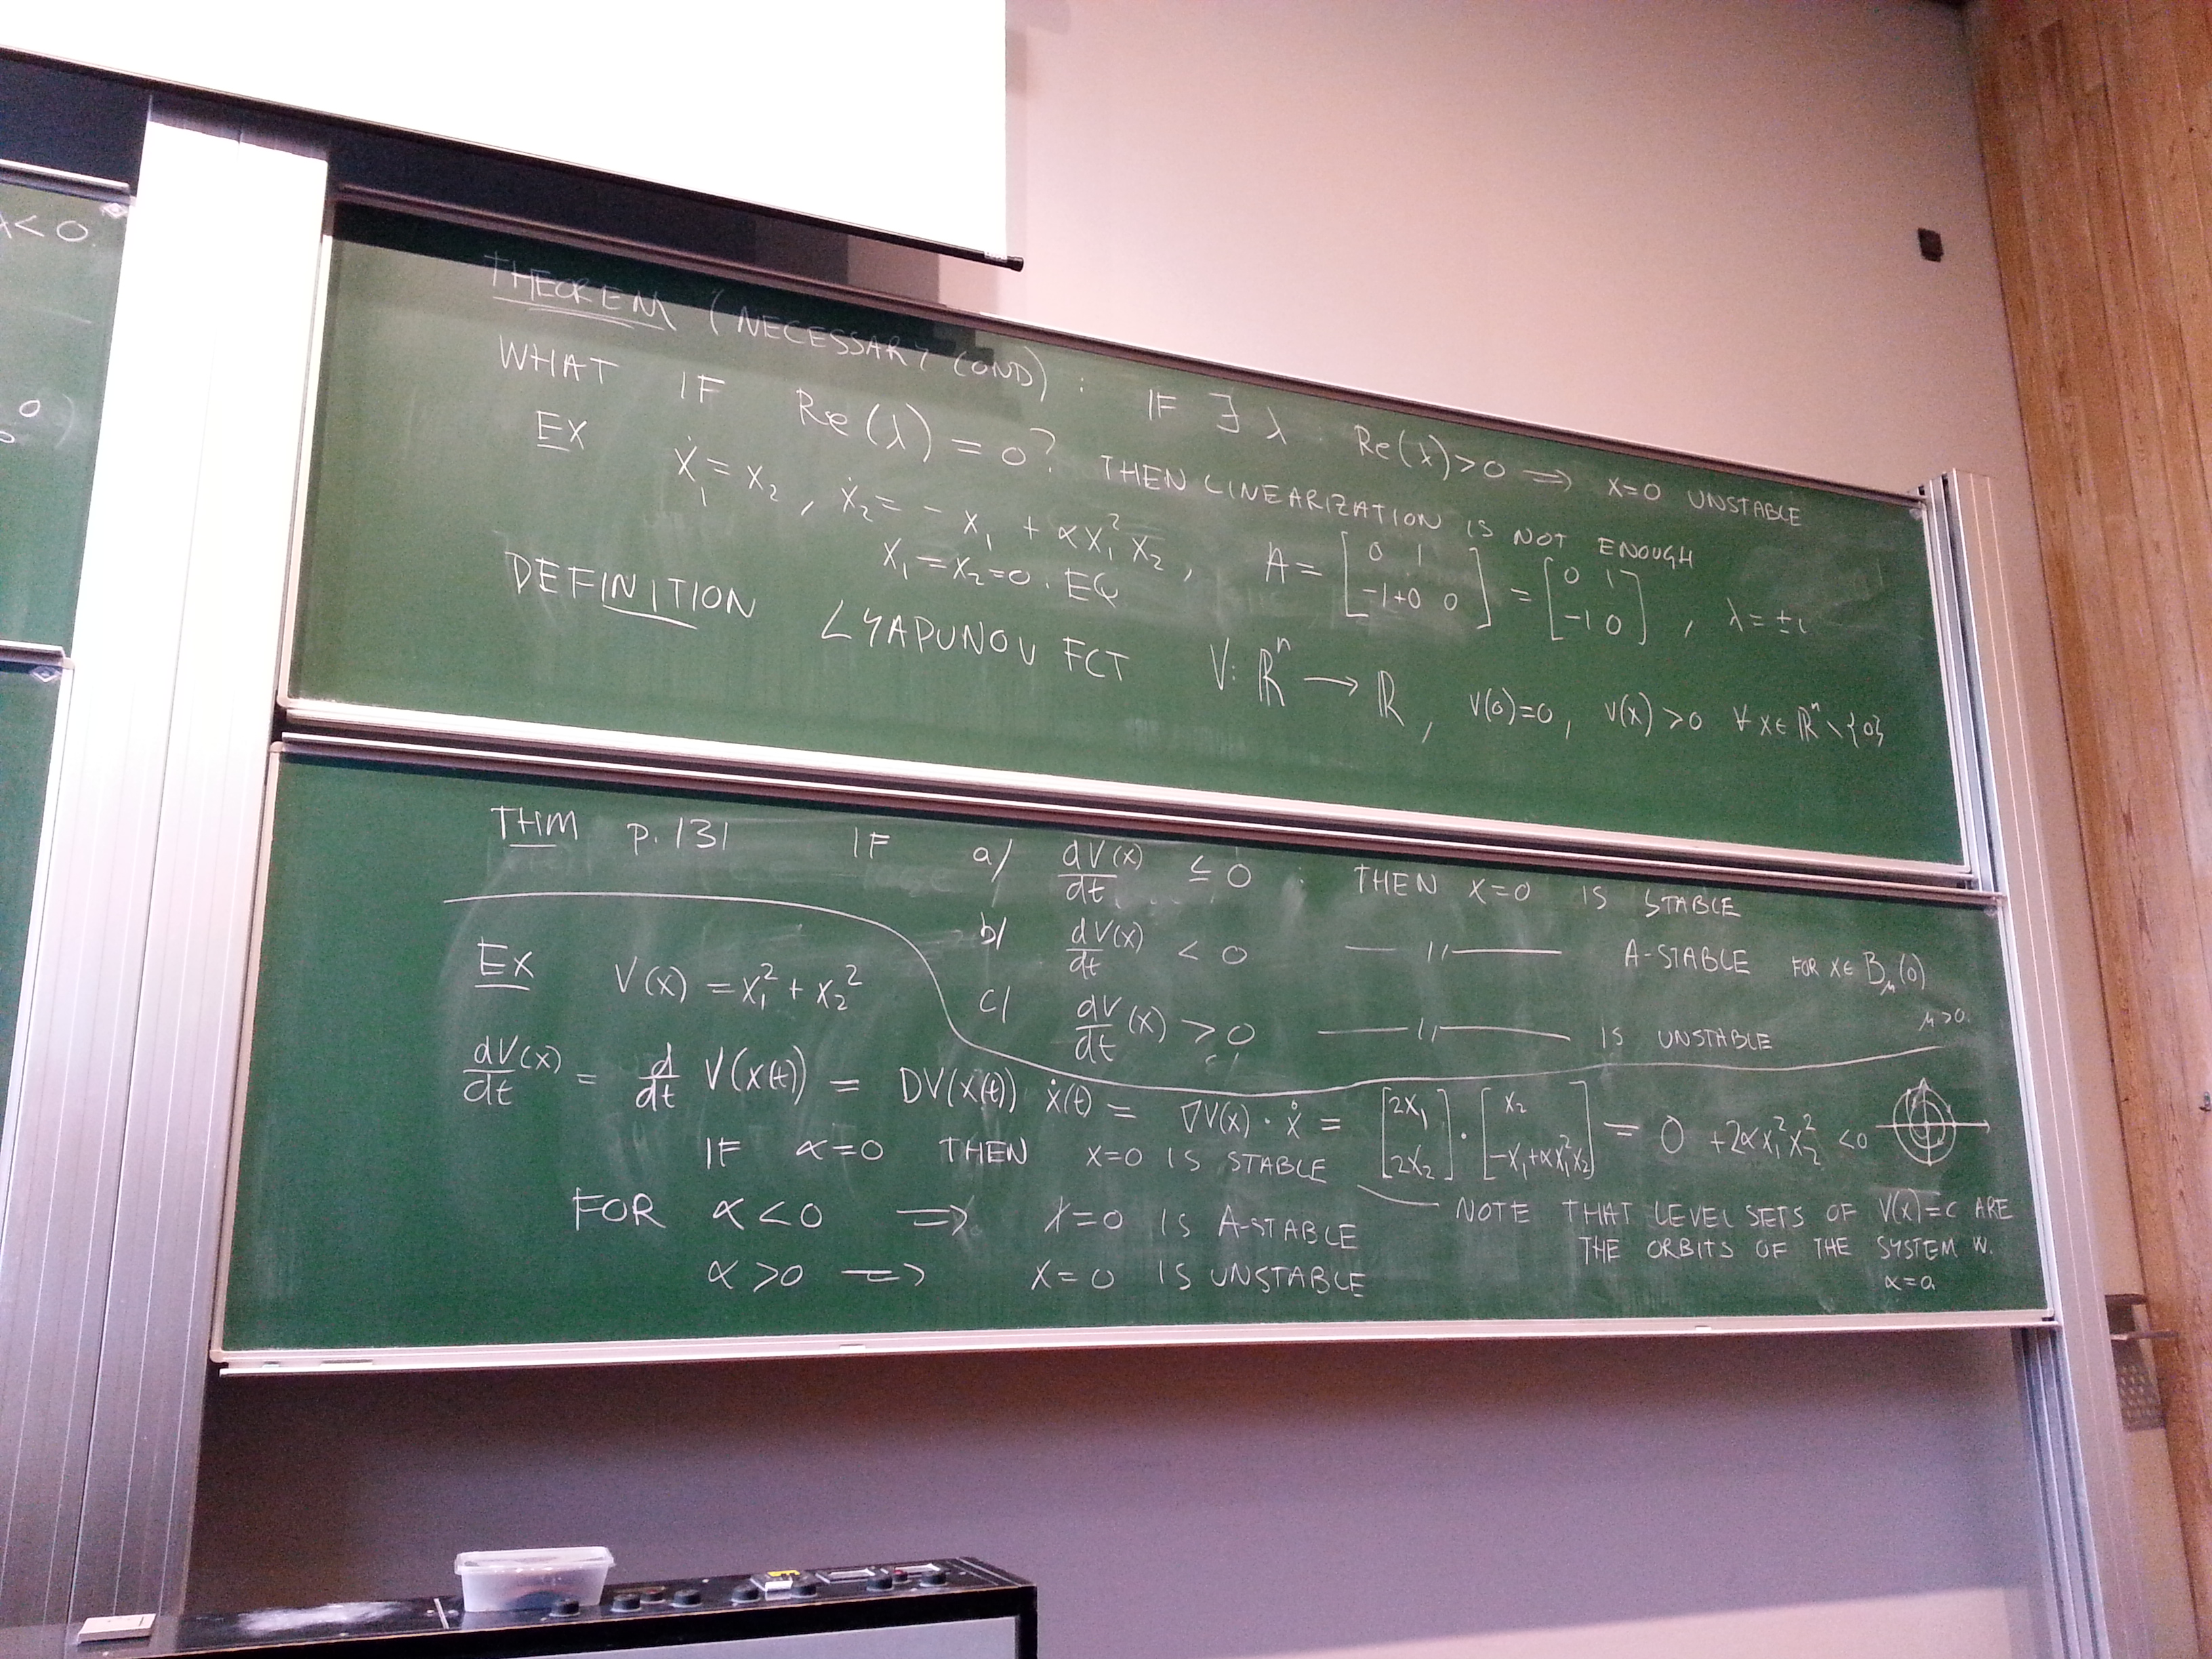 λ<0.
0
0 )
THEOREM (NECESSARY COND) : IF ∃ λ : Re(λ)>0 ⟹ x=0 UNSTABLE
WHAT IF Re(λ)=0? THEN LINEARIZATION IS NOT ENOUGH
EX ẋ₁=x₂, ẋ₂=-x₁+αx₁²x₂, A=[0 1; -1+0 0]=[0 1; -1 0], λ=±i
x₁=x₂=0. EQ
DEFINITION LYAPUNOV FCT V: ℝⁿ → ℝ, V(0)=0, V(x)>0 ∀ x∈ℝⁿ∖{0}
THM p.131 IF a/ dV(x)/dt ≤ 0 : THEN x=0 IS STABLE
b/ dV(x)/dt < 0 — ,, — A-STABLE FOR x∈B_μ(0)
c/ dV/dt (x) > 0 — ,, — IS UNSTABLE μ>0.
Ex V(x)=x₁²+x₂²
dV/dt (x) = d/dt V(x(t)) = DV(x(t)) ẋ(t) = ∇V(x)·ẋ = [2x₁; 2x₂]·[x₂; -x₁+αx₁²x₂] = 0 +2αx₁²x₂² <0
IF α=0 THEN x=0 IS STABLE
NOTE THAT LEVEL SETS OF V(x)=c ARE
THE ORBITS OF THE SYSTEM W.
α=0
FOR α<0 ⟹ x=0 IS A-STABLE
α>0 ⟹ x=0 IS UNSTABLE